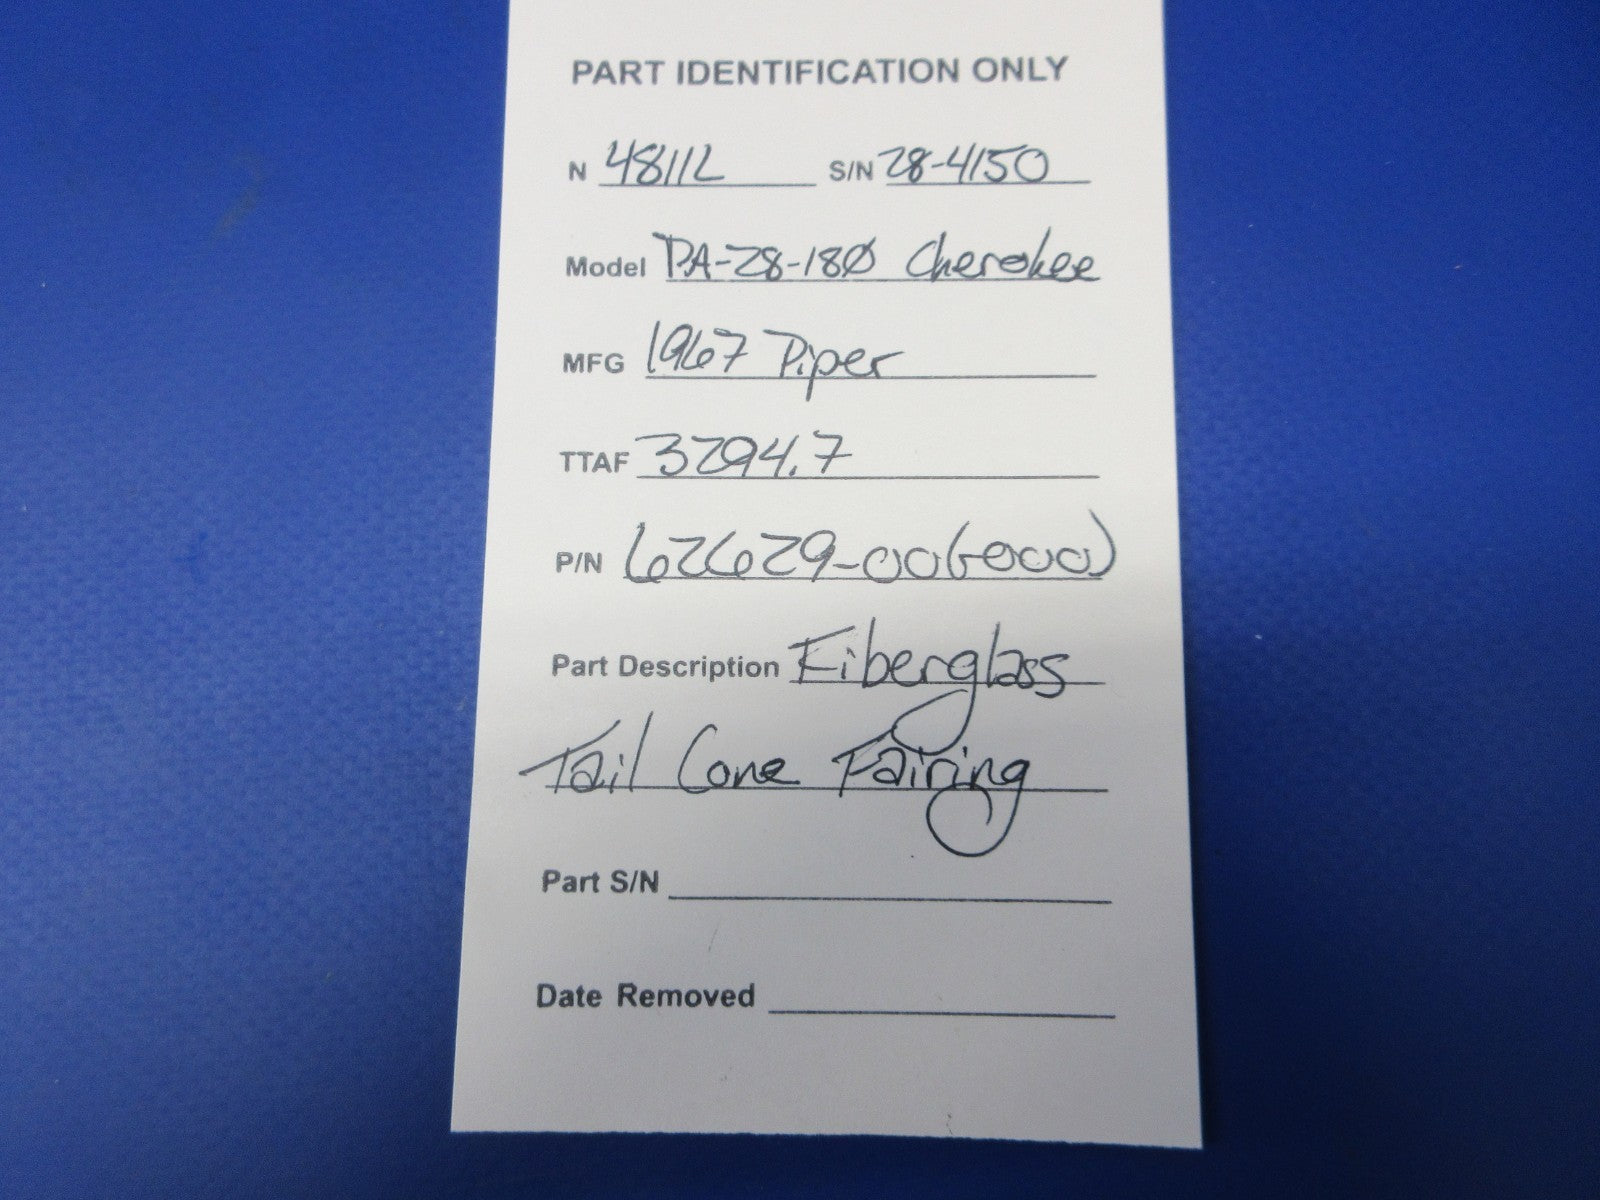 PART IDENTIFICATION ONLY
N 4811L S/N 28-4150
Model PA-28-180 Cherokee
MFG 1967 Piper
TTAF 3294.7
P/N 62629-00(-000)
Part Description Fiberglass
Tail Cone Fairing
Part S/N
Date Removed